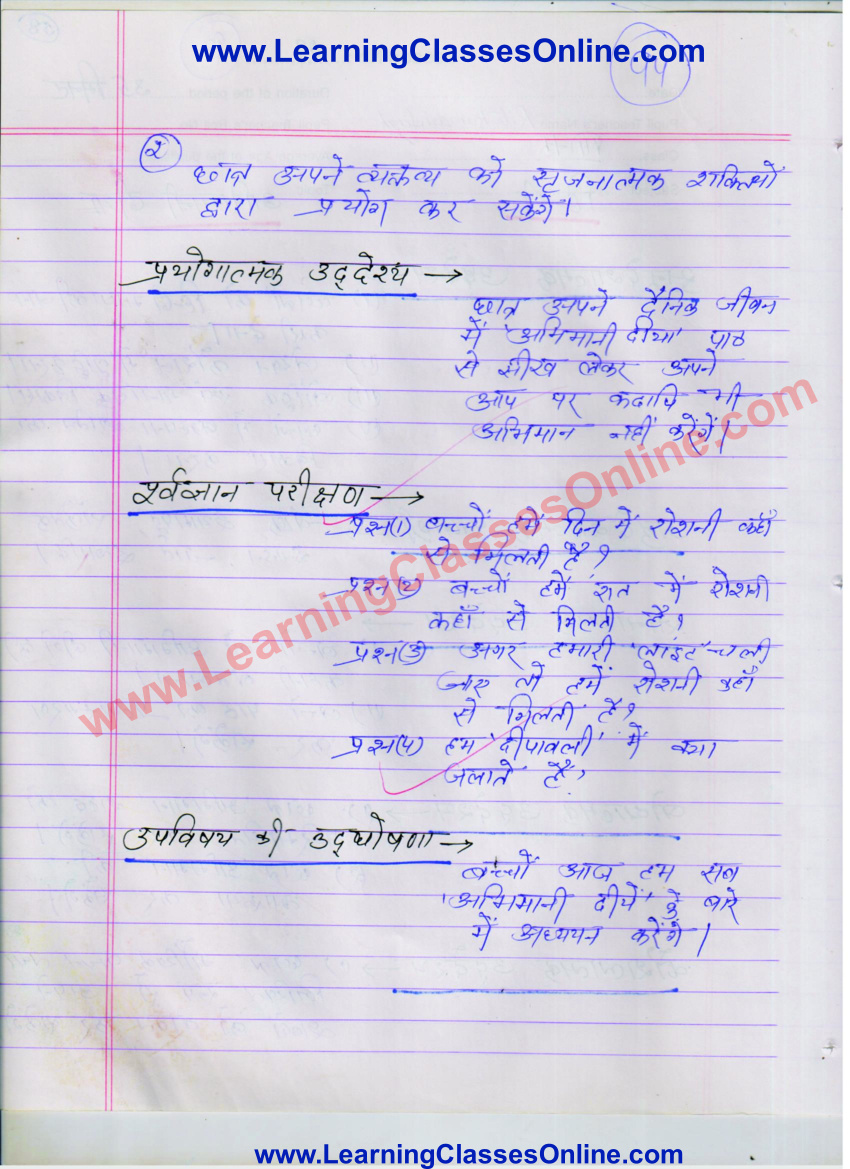 www.LearningClassesOnline.com
५५
२
छात्र अपने व्यक्तव्य को सृजनात्मक शक्तियों
द्वारा प्रयोग कर सकेंगे।
प्रयोगात्मक उद्देश्य →
छात्र अपने दैनिक जीवन
में 'अभिमानी दीया' पाठ
से सीख लेकर अपने
आप पर कदापि भी
अभिमान नहीं करेंगें।
पूर्वज्ञान परीक्षण →
प्रश्न(1) बच्चों हमें दिन में रोशनी कहाँ
से मिलती है?
प्रश्न(२) बच्चों हमें रात में रोशनी
कहाँ से मिलती है?
प्रश्न(3) अगर हमारी लाइट चली
जाए तो हमें रोशनी कहाँ
से मिलती है?
प्रश्न(४) हम 'दीपावली' में क्या
जलाते हैं?
उपविषय की उद्घोषणा →
बच्चों आज हम सब
'अभिमानी दीये' के बारे
में अध्ययन करेंगे।
www.LearningClassesOnline.com
www.LearningClassesOnline.com